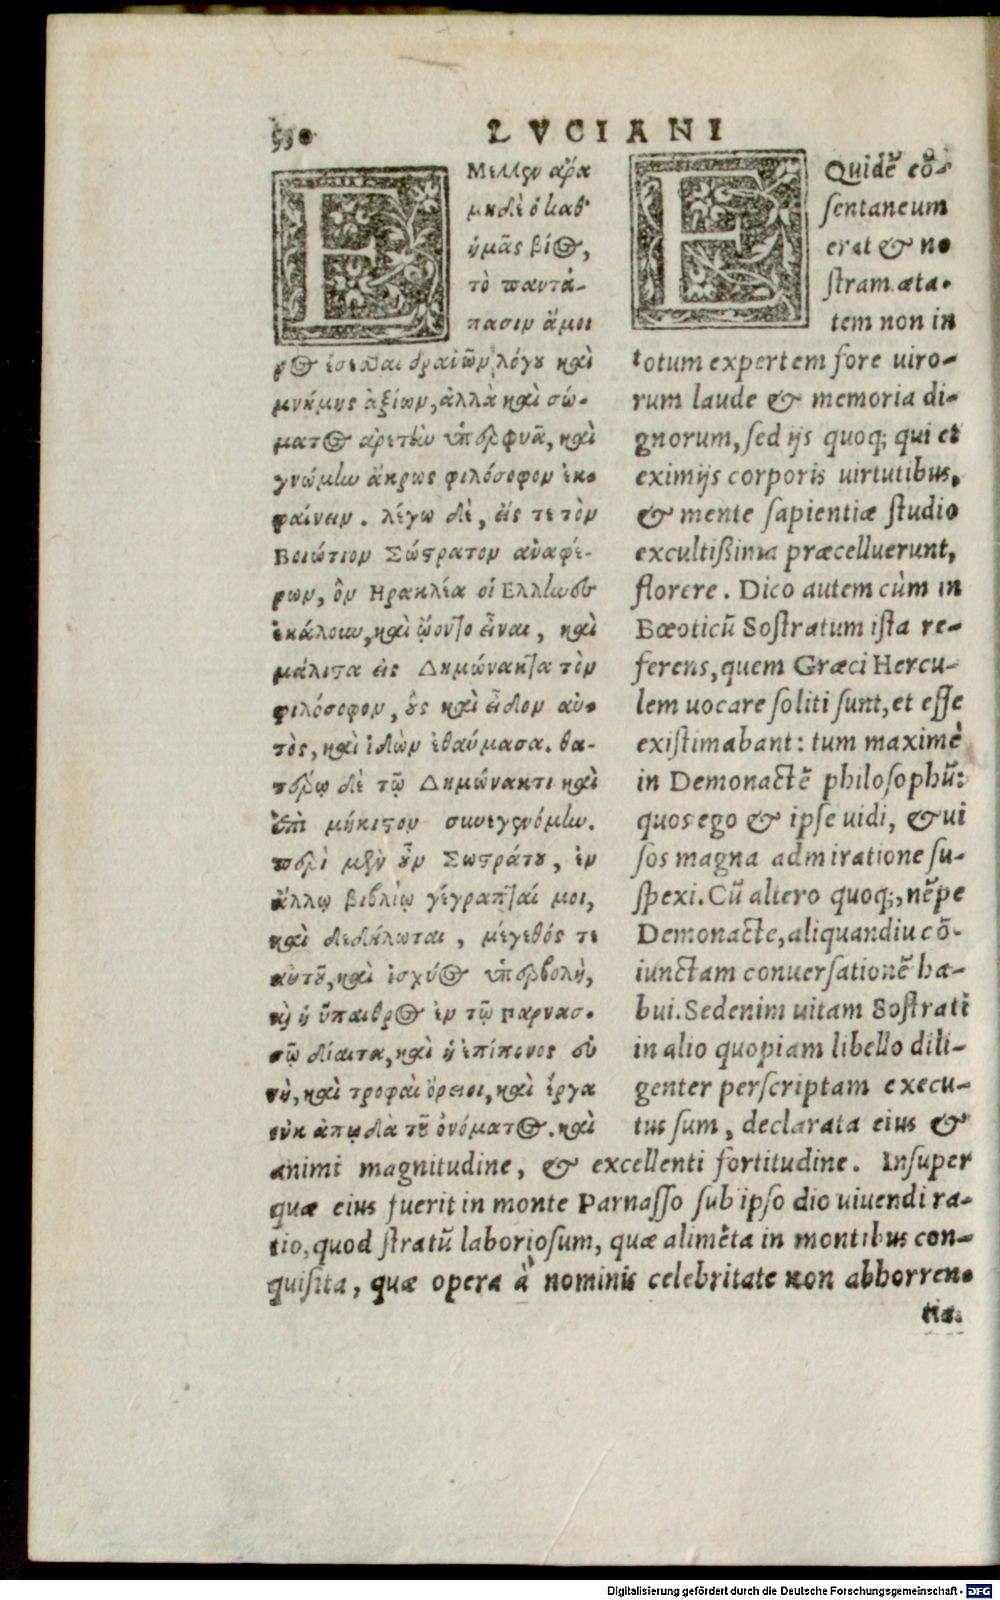 530 LVCIANI
ΕΜελλεν ἄρα
μηδὲ ὁ καθ'
ἡμᾶς βίος,
τὸ παντά-
πασιν ἄμοι
ρος ἔσεσθαι ἀνδρῶν λόγου καὶ
μνήμης ἀξίων, ἀλλὰ καὶ σώ-
ματος ἀρετὴν ὑπερφυᾶ, καὶ
γνώμην ἄκρως φιλόσοφον ἐκ-
φαίνειν. λέγω δὲ, εἴς τε τὸν
Βοιώτιον Σώστρατον ἀναφέ-
ρων, ὃν Ηρακλέα οἱ Ελληνες
ἐκάλουν, καὶ ᾤοντο εἶναι, καὶ
μάλιστα εἰς Δημώνακτα τὸν
φιλόσοφον, οὓς καὶ εἶδον αὐ-
τὸς, καὶ ἰδὼν ἐθαύμασα. θα-
τέρῳ δὲ τῷ Δημώνακτι καὶ
ἐπὶ μήκιστον συνεγενόμην.
περὶ μὲν οὖν Σωστράτου, ἐν
ἄλλῳ βιβλίῳ γέγραπταί μοι,
καὶ δεδήλωται, μέγεθός τε
αὐτοῦ, καὶ ἰσχύος ὑπερβολὴ,
καὶ ἡ ὕπαιθρος ἐν τῷ παρνασ-
σῷ δίαιτα, καὶ ἡ ἐπίπονος εὐ
νὴ, καὶ τροφαὶ ὄρειοι, καὶ ἔργα
οὐκ ἀπῳδὰ τοῦ ὀνόματος. καὶ
EQuidē cō-
sentaneum
erat & no
stram æta-
tem non in
totum expertem fore uiro-
rum laude & memoria di-
gnorum, sed ijs quoq; qui et
eximijs corporis uirtutibus,
& mente sapientiæ studio
excultißima præcelluerunt,
florere. Dico autem cùm in
Bœoticū Sostratum ista re-
ferens, quem Græci Hercu-
lem uocare soliti sunt, et esse
existimabant: tum maximè
in Demonactē philosophū:
quos ego & ipse uidi, & ui
sos magna admiratione su-
spexi. Cū altero quoq;, nēpe
Demonacte, aliquandiu cō-
iunctam conuersationē ha-
bui. Sedenim uitam Sostrati
in alio quopiam libello dili-
genter perscriptam execu-
tus sum, declarata eius &
animi magnitudine, & excellenti fortitudine. Insuper
quæ eius fuerit in monte Parnasso sub ipso dio uiuendi ra-
tio, quod stratū laboriosum, quæ alimēta in montibus con-
quisita, quæ opera à nominis celebritate non abhorren-
tia.
Digitalisierung gefördert durch die Deutsche Forschungsgemeinschaft - DFG